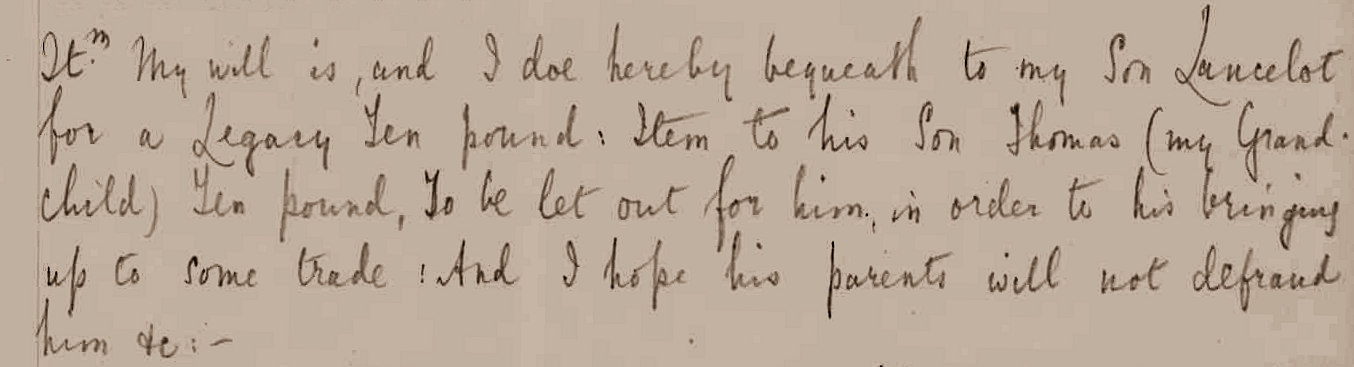 It.m My will is, and I doe hereby bequeath to my Son Lancelot
for a Legacy Ten pound: Item to his Son Thomas (my Grand-
child) Ten pound, To be let out for him, in order to his bringing
up to some trade: And I hope his parents will not defraud
him &c:-